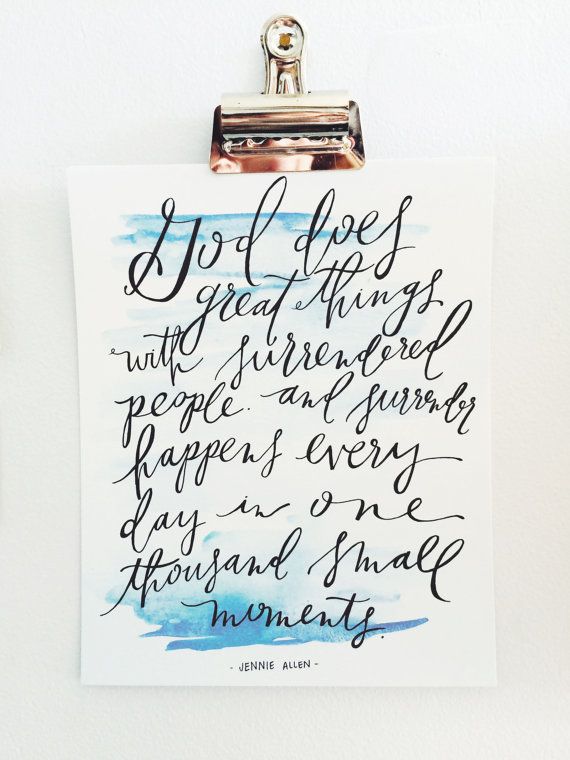 God does
great things
with surrendered
people. and surrender
happens every
day in one
thousand small
moments.
- JENNIE ALLEN -